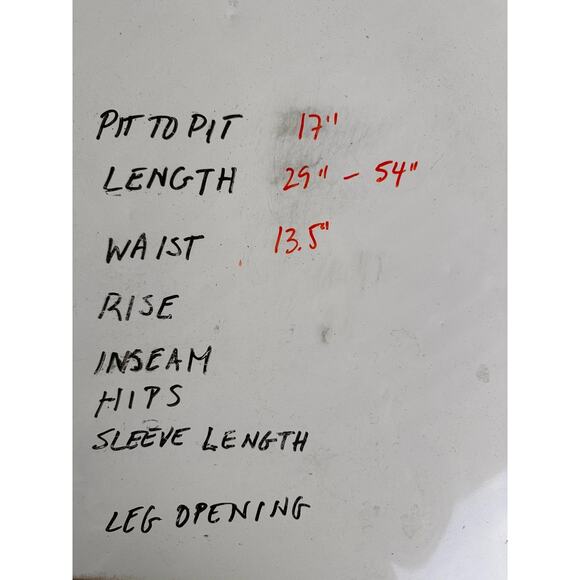 PIT TO PIT 17"
LENGTH 29" - 54"
WAIST 13.5"
RISE
INSEAM
HIPS
SLEEVE LENGTH
LEG OPENING